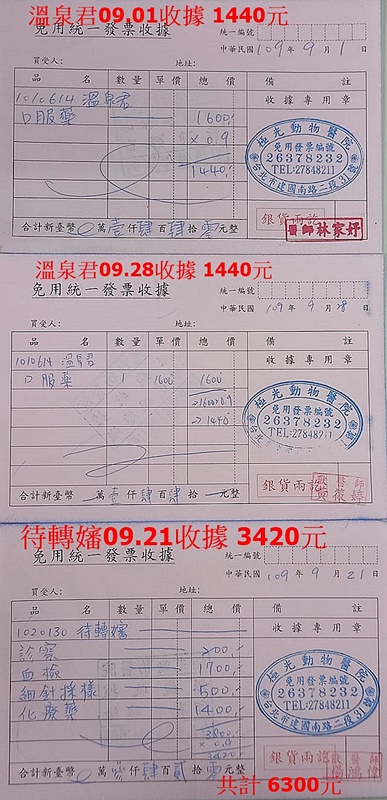 溫泉君09.01收據 1440元
免用統一發票收據
統一編號
中華民國 109年 9月 1日
買受人: 地址:
品名 數量 單價 總價 備註
1010614 溫泉君 收據專用章
口服藥 1600
×0.9
1440
極光動物醫院
免用發票編號
26378232
TEL:27848211
台北市建國南路二段31號
銀貨兩訖
醫師林家妤
合計新臺幣 0 萬 壹 仟 肆 百 肆 拾 零 元整
溫泉君09.28收據 1440元
免用統一發票收據
統一編號
中華民國 109年 9月 28日
買受人: 地址:
品名 數量 單價 總價 備註
1010614 溫泉君 收據專用章
口服藥 1 1600 1600
→1600×0.9
→1440
極光動物醫院
免用發票編號
26378232
TEL:27848211
銀貨兩訖
合計新臺幣 萬 壹 仟 肆 百 肆 拾 元整
待轉嬸09.21收據 3420元
免用統一發票收據
統一編號
中華民國 109年 9月 21日
買受人: 地址:
品名 數量 單價 總價 備註
1020130 待轉嬸 收據專用章
診察 200
血檢 1700
細針採樣 500
化療藥 1400
3800
×0.9
3420
極光動物醫院
免用發票編號
26378232
TEL:27848211
台北市建國南路二段31號
銀貨兩訖
合計新臺幣 萬 仟 肆 百 貳 拾 零 元整
共計 6300元